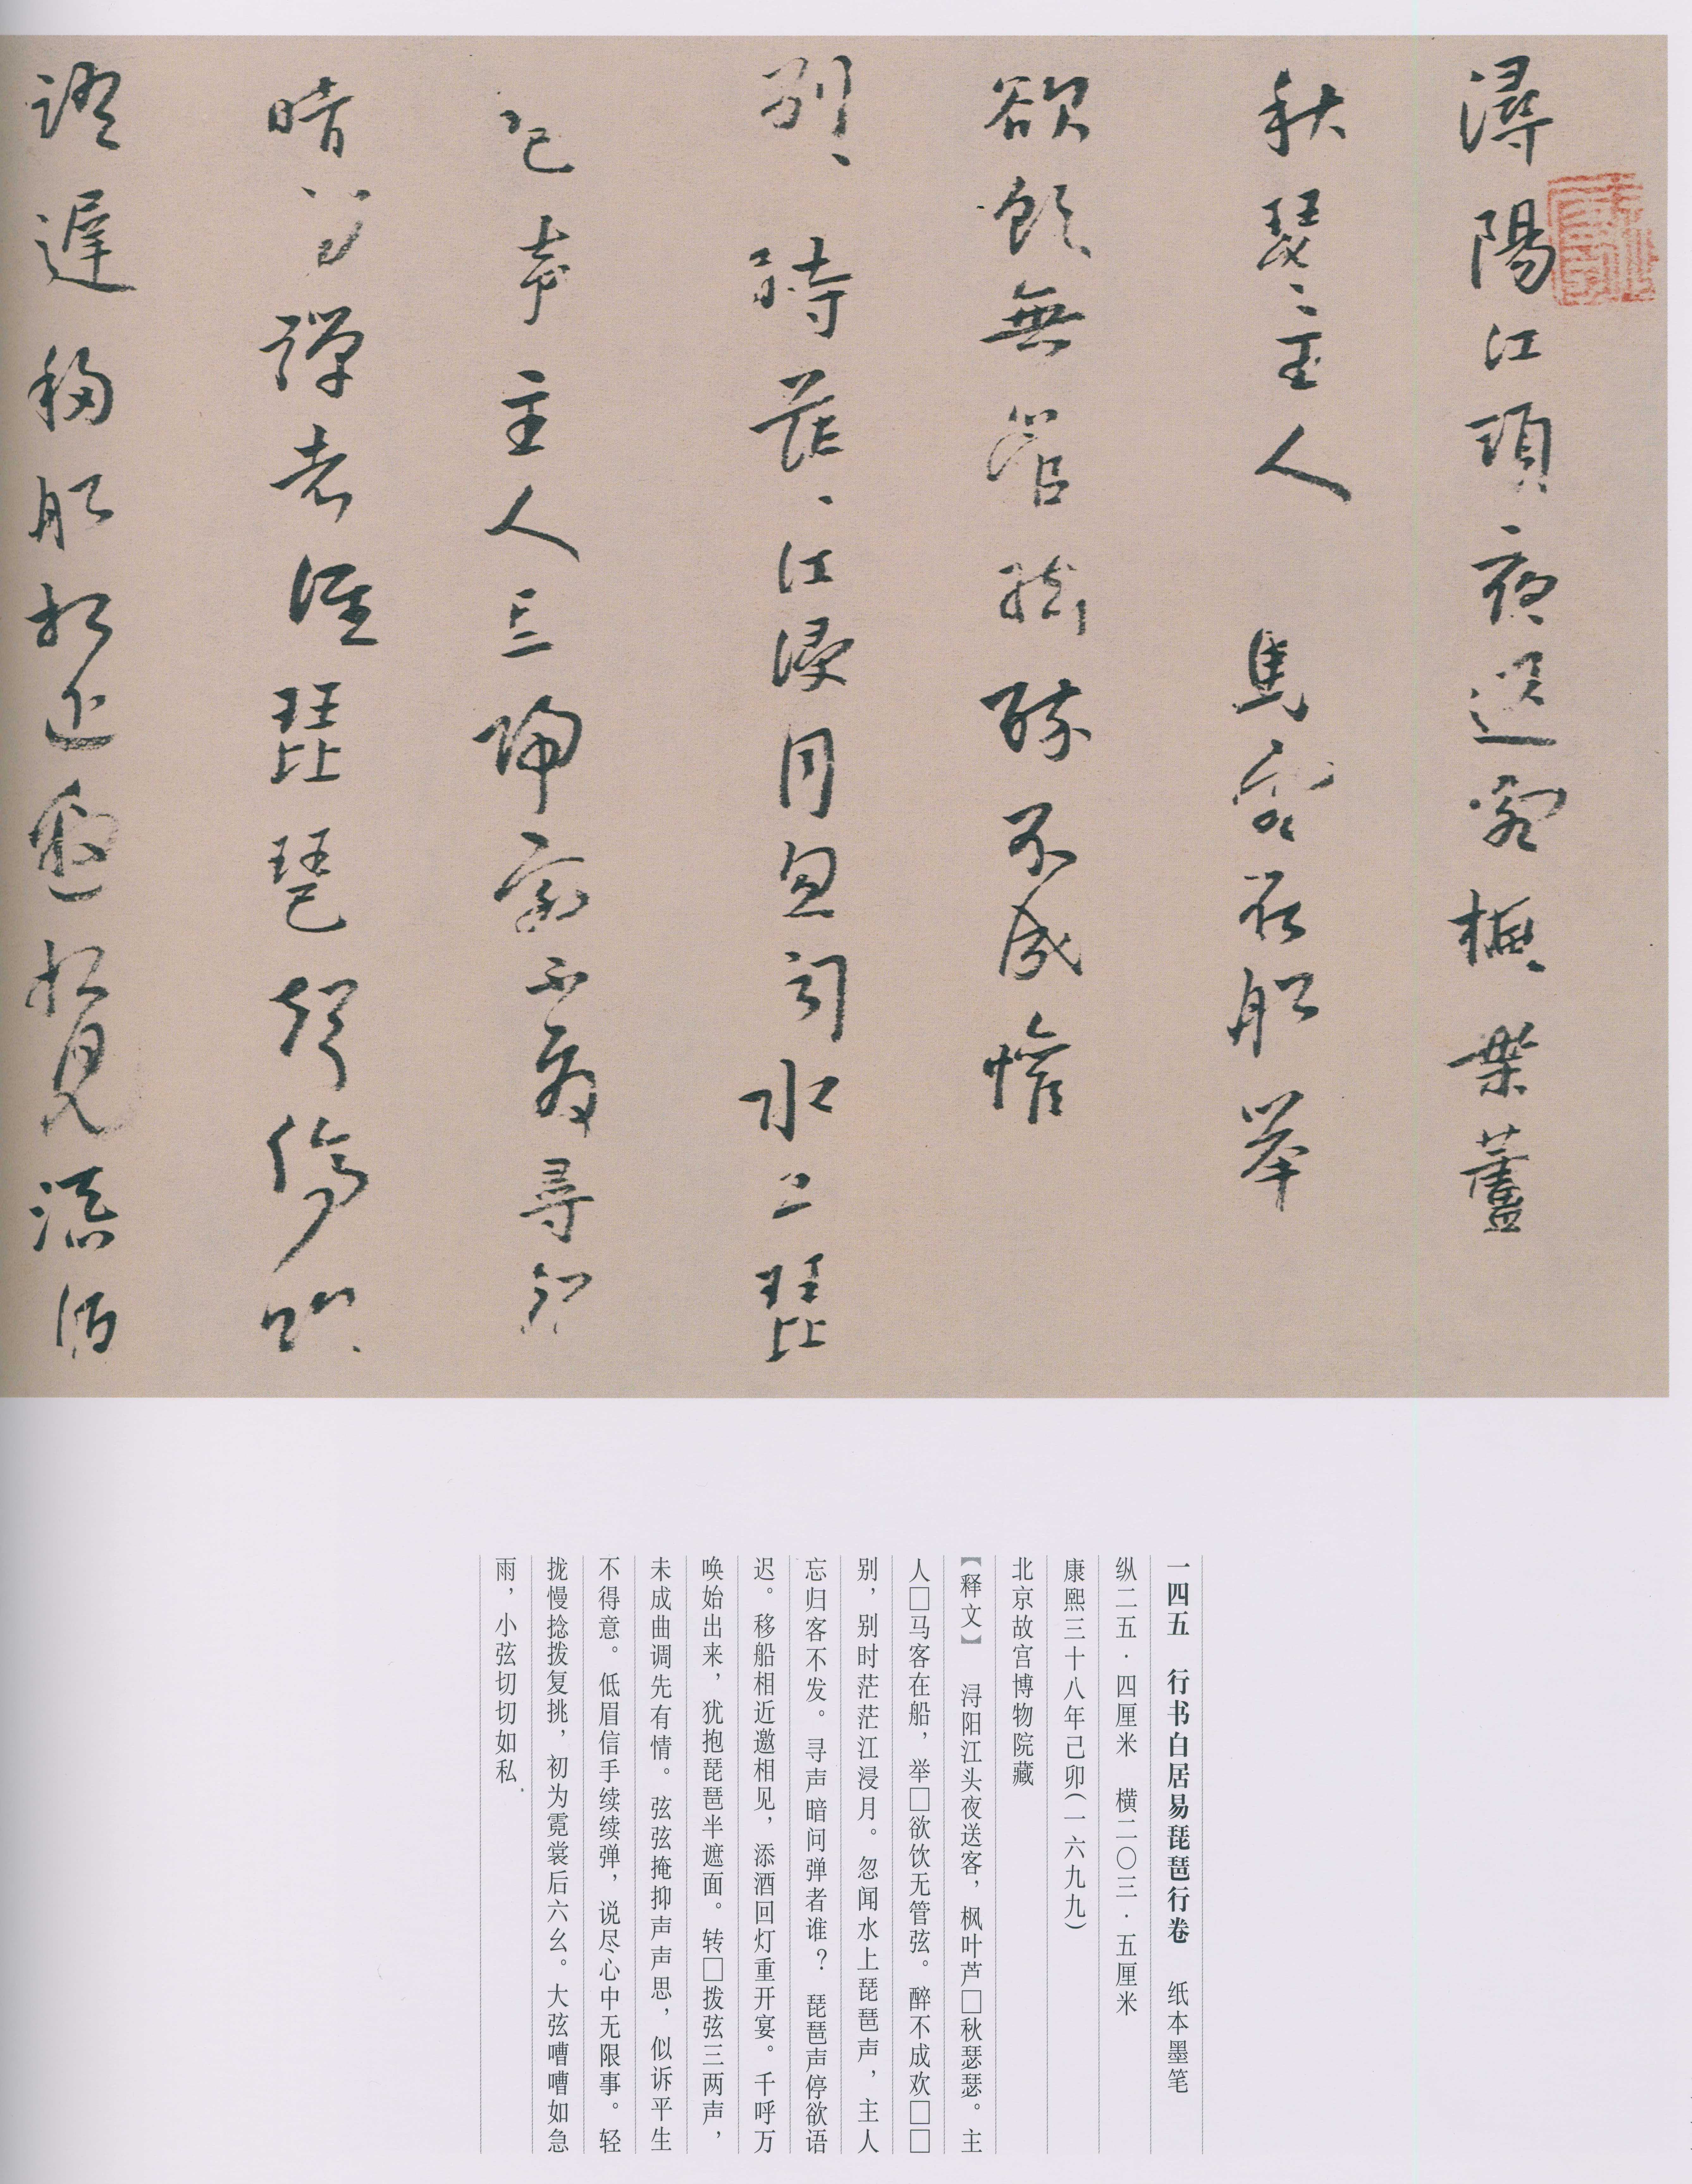 潯陽江頭夜送客楓葉蘆
秋瑟〻主人 馬客在船举
欲飲無管絃醉不成懽
别〻時茫〻江浸月忽闻水上琵
琶声主人忘歸客不發尋聲
暗问彈者誰琵琶聲停欲
語遲移船相近邀相見添酒
一四五 行书白居易琵琶行卷 纸本墨笔
纵二五·四厘米 横二〇三·五厘米
康熙三十八年己卯(一六九九)
北京故宫博物院藏
【释文】 浔阳江头夜送客,枫叶芦□秋瑟瑟。主
人□马客在船,举□欲饮无管弦。醉不成欢□□
别,别时茫茫江浸月。忽闻水上琵琶声,主人
忘归客不发。寻声暗问弹者谁?琵琶声停欲语
迟。移船相近邀相见,添酒回灯重开宴。千呼万
唤始出来,犹抱琵琶半遮面。转□拨弦三两声,
未成曲调先有情。弦弦掩抑声声思,似诉平生
不得意。低眉信手续续弹,说尽心中无限事。轻
拢慢捻拨复挑,初为霓裳后六幺。大弦嘈嘈如急
雨,小弦切切如私